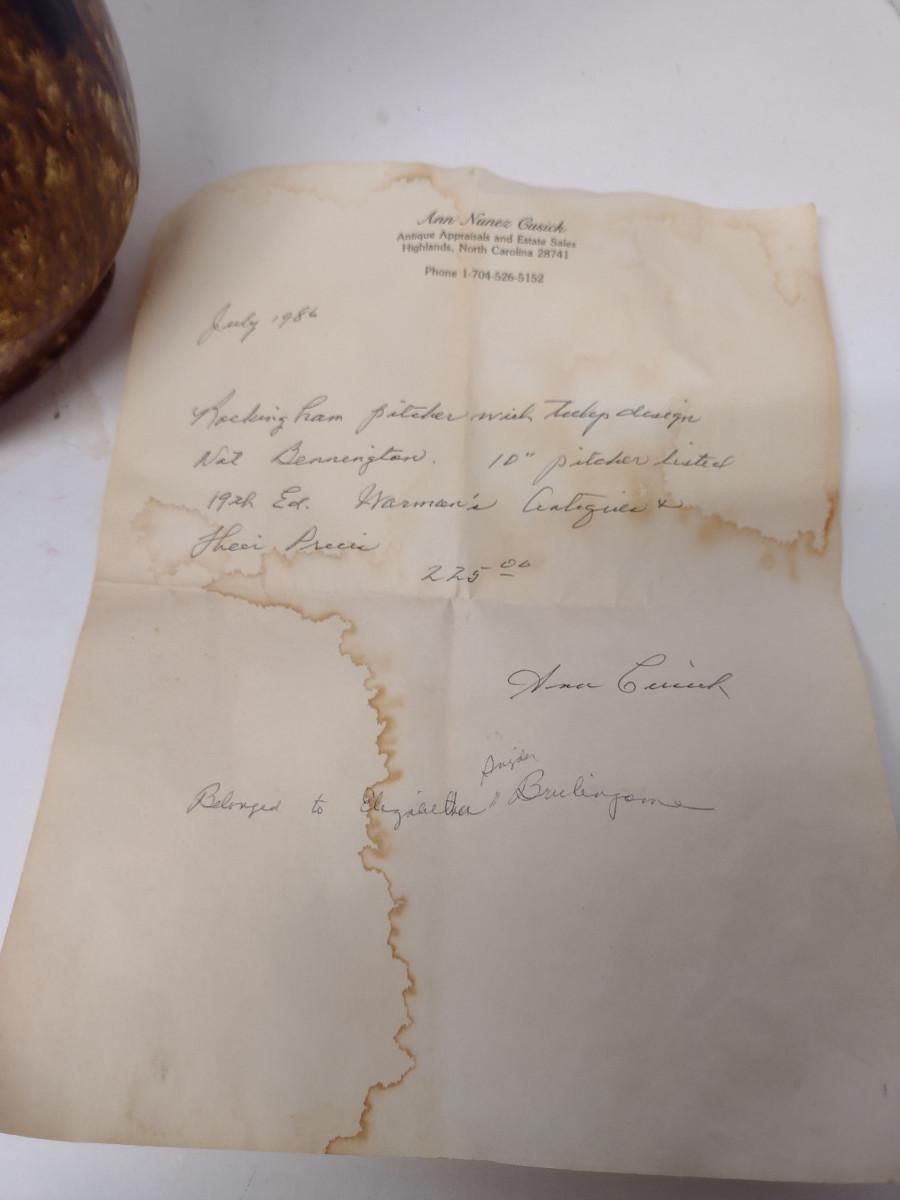 Ann Nunez Cusick
Antique Appraisals and Estate Sales
Highlands, North Carolina 28741
Phone 1-704-526-5152
July 1986
Rockingham pitcher with tulip design
Not Bennington. 10" pitcher listed
19th Ed. Warman's Antiques &
Their Prices
225.00
Ann Cusick
Snyder
Belonged to Elizabeth Brulingame